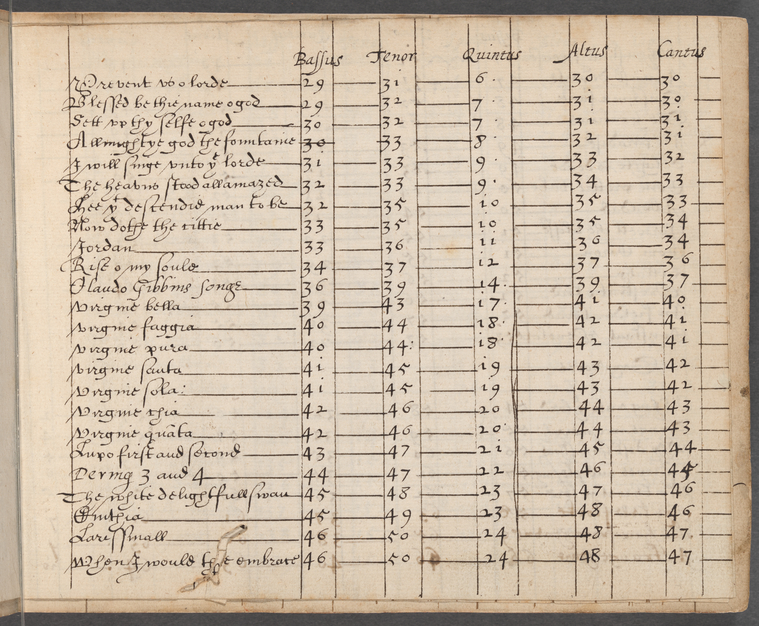 Bassus Tenor Quintus Altus Cantus
Prevent vs o lorde 29 31 6 30 30
Blessed be thie name o god 29 32 7 31 30
Sett vp thy selfe o god 30 32 7 31 31
Allmightye god the fountaine 30 33 8 32 31
I will singe vnto ye lorde 31 33 9 33 32
The heavns stood all amazed 32 33 9 34 33
hee yt descendid man to be 32 35 10 35 33
Now dothe the cittie 33 35 10 35 34
Jordan 33 36 11 36 34
Rise o my soule 34 37 12 37 36
Olando Gibbins songe 36 39 14 39 37
virgine bella 39 43 17 41 40
virgine saggia 40 44 18 42 41
virgine pura 40 44 18 42 41
virgine santa 41 45 19 43 42
virgine sola 41 45 19 43 42
virgine chia 42 46 20 44 43
virgine quāta 42 46 20 44 43
Lupo first and second 43 47 21 45 44
Dering 3 and 4 44 47 22 46 45
The white delightfull swan 45 48 23 47 46
Cinthia 45 49 23 48 46
46 50 24 48 47
When I would thee embrace 46 50 24 48 47